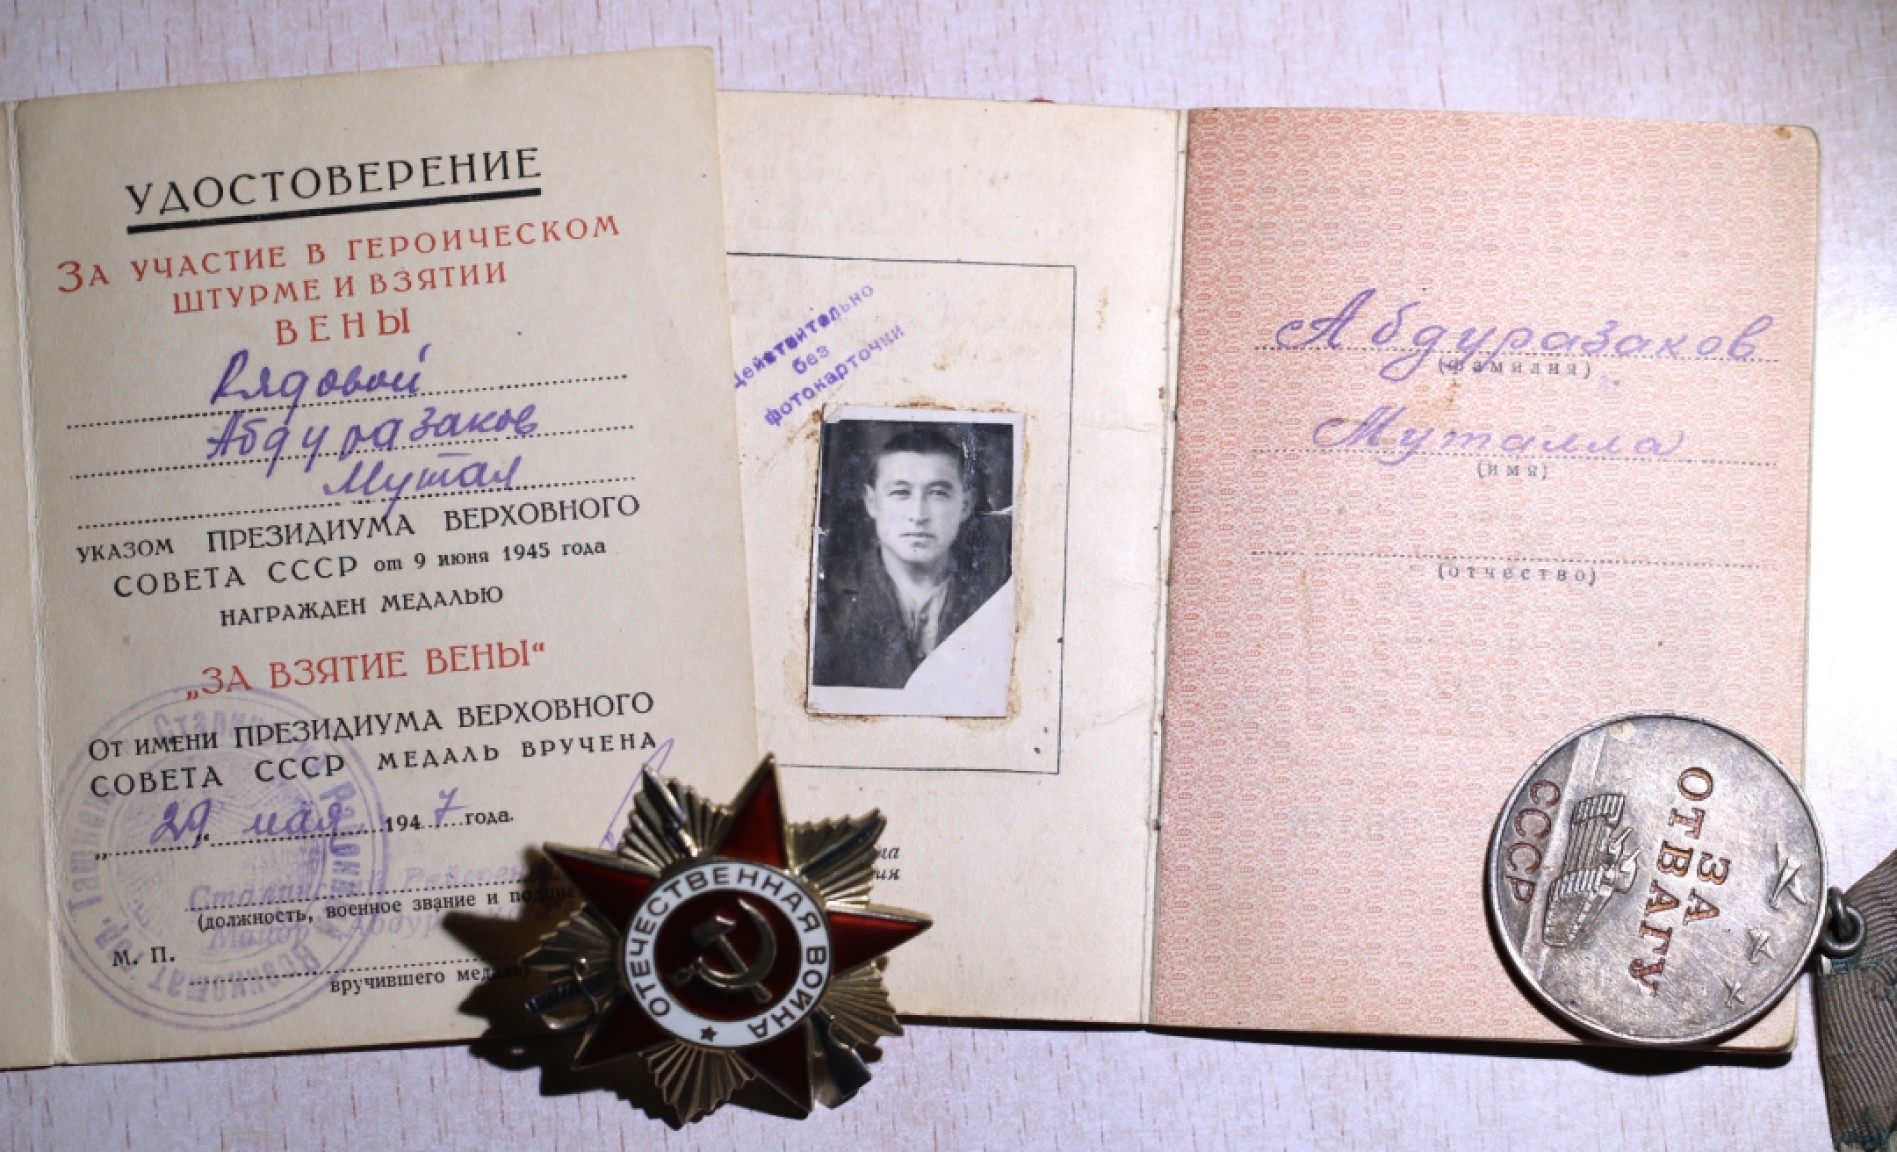 УДОСТОВЕРЕНИЕ
ЗА УЧАСТИЕ В ГЕРОИЧЕСКОМ
ШТУРМЕ И ВЗЯТИИ
ВЕНЫ
Рядовой
Абдуразаков
Мутал
УКАЗОМ ПРЕЗИДИУМА ВЕРХОВНОГО
СОВЕТА СССР от 9 июня 1945 года
НАГРАЖДЕН МЕДАЛЬЮ
„ЗА ВЗЯТИЕ ВЕНЫ“
ОТ ИМЕНИ ПРЕЗИДИУМА ВЕРХОВНОГО
СОВЕТА СССР МЕДАЛЬ ВРУЧЕНА
„29“ мая 1947 года.
Сталинский
(должность, военное звание и
Майор
М. П.
вручившего
Действительно
без
фотокарточки
Абдуразаков
(фамилия)
Муталла
(имя)
(отчество)
ОТЕЧЕСТВЕННАЯ ВОЙНА
ЗА
ОТВАГУ
СССР